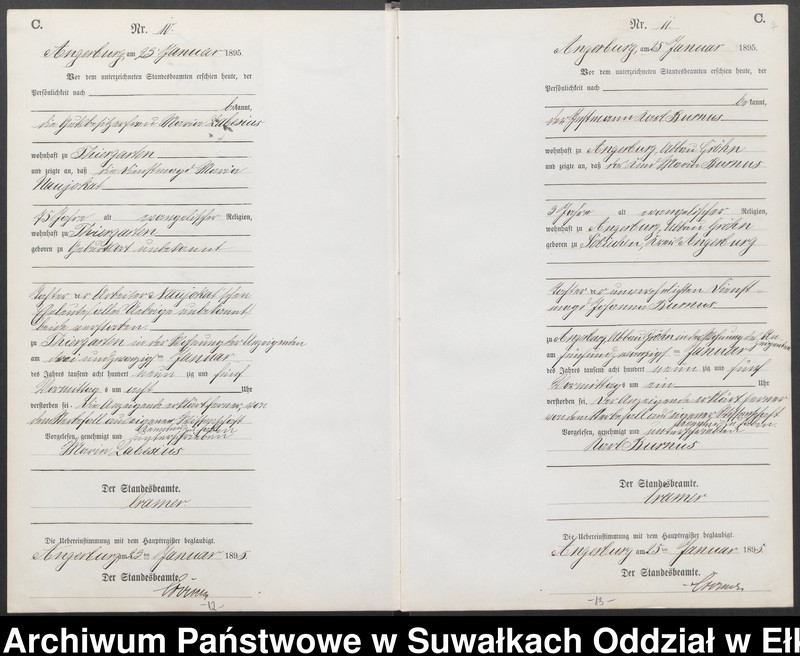 C.
Nr. 10.
Angerburg, am 23. Januar 1895.
Vor dem unterzeichneten Standesbeamten erschien heute, der
Persönlichkeit nach
bekannt,
die Gutsbesitzerfrau Maria Zabesius
wohnhaft zu Thiergarten
und zeigte an, daß die Dienstmagd Maria
Naujokat
75 Jahre alt evangelischer Religion,
wohnhaft zu Thiergarten
geboren zu Geburtsort unbekannt
Tochter der Arbeiter Naujokat'schen
Eheleute, alles Uebrige unbekannt
beide verstorben
zu Thiergarten in der Wohnung der Anzeigenden
am drei und zwanzigsten Januar
des Jahres tausend acht hundert neunzig und fünf
Vormittags um acht Uhr
verstorben sei. Die Anzeigende erklärt ferner, von
dem Sterbefall aus eigener Wissenschaft
unterrichtet zu sein
Vorgelesen, genehmigt und unterschrieben
Maria Zabesius
Der Standesbeamte.
Cramer
Die Uebereinstimmung mit dem Hauptregister beglaubigt.
Angerburg am 23ten Januar 1895
Der Standesbeamte.
Cramer
-12-
C.
Nr. 11
Angerburg, am 25 Januar 1895.
Vor dem unterzeichneten Standesbeamten erschien heute, der
Persönlichkeit nach
bekannt,
der Instmann Karl Burnus
wohnhaft zu Angerburg, Abbau Gröhn
und zeigte an, daß das Kind Maria Burnus
3 Jahre alt evangelischer Religion,
wohnhaft zu Angerburg, Abbau Gröhn
geboren zu Kreis Angerburg
Tochter der unverehelichten Dienst-
magd Johanna Burnus
zu Angerburg Abbau Gröhn in der Wohnung des An-
zeigenden
am fünfundzwanzigsten Januar
des Jahres tausend acht hundert neunzig und fünf
Vormittags um ein Uhr
verstorben sei. Der Anzeigende erklärt ferner
von dem Sterbefall aus eigener Wissenschaft
unterrichtet zu sein.
Vorgelesen, genehmigt und unterschrieben
Karl Burnus
Der Standesbeamte.
Cramer
Die Uebereinstimmung mit dem Hauptregister beglaubigt.
Angerburg am 25ten Januar 1895
Der Standesbeamte.
Cramer
-13-
Archiwum Państwowe w Suwałkach Oddział w Ełk